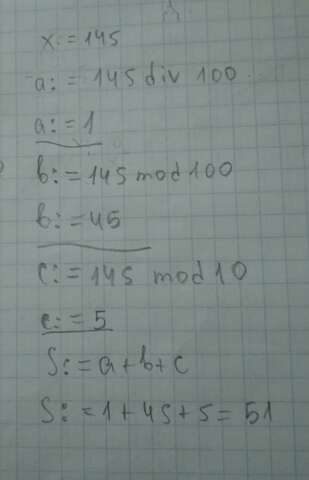 x:=145
a:=145 div 100
a:=1
b:=145 mod 100
b:=45
c:=145 mod 10
c:=5
S:=a+b+c
S:=1+45+5=51